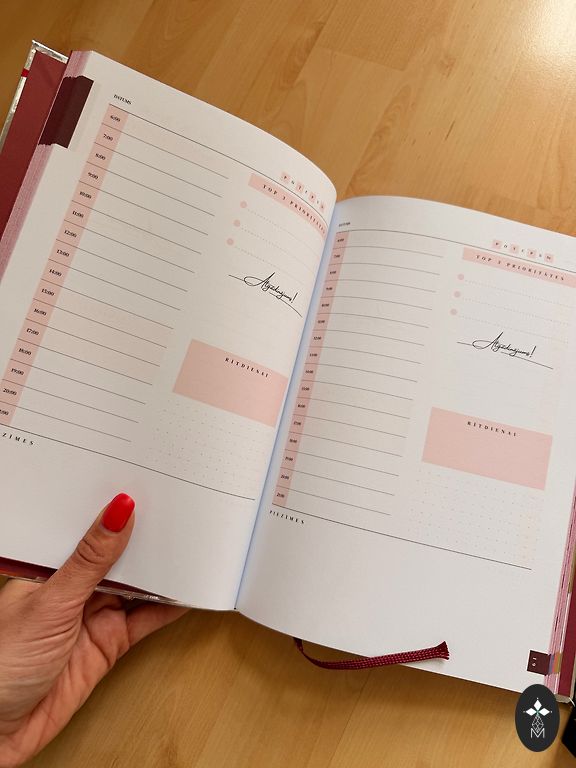 DATUMS
P O T C P S
TOP 3 PRIORITĀTES
6:00
7:00
8:00
9:00
10:00
11:00
12:00
13:00
14:00
15:00
16:00
17:00
18:00
19:00
20:00
:00
Atgādinājums!
RĪTDIENAI
ZĪMES
DATUMS
P O T C P S
TOP 3 PRIORITĀTES
6:00
7:00
8:00
9:00
10:00
11:00
12:00
13:00
14:00
15:00
16:00
17:00
18:00
19:00
20:00
21:00
Atgādinājums!
RĪTDIENAI
PIEZĪMES
M